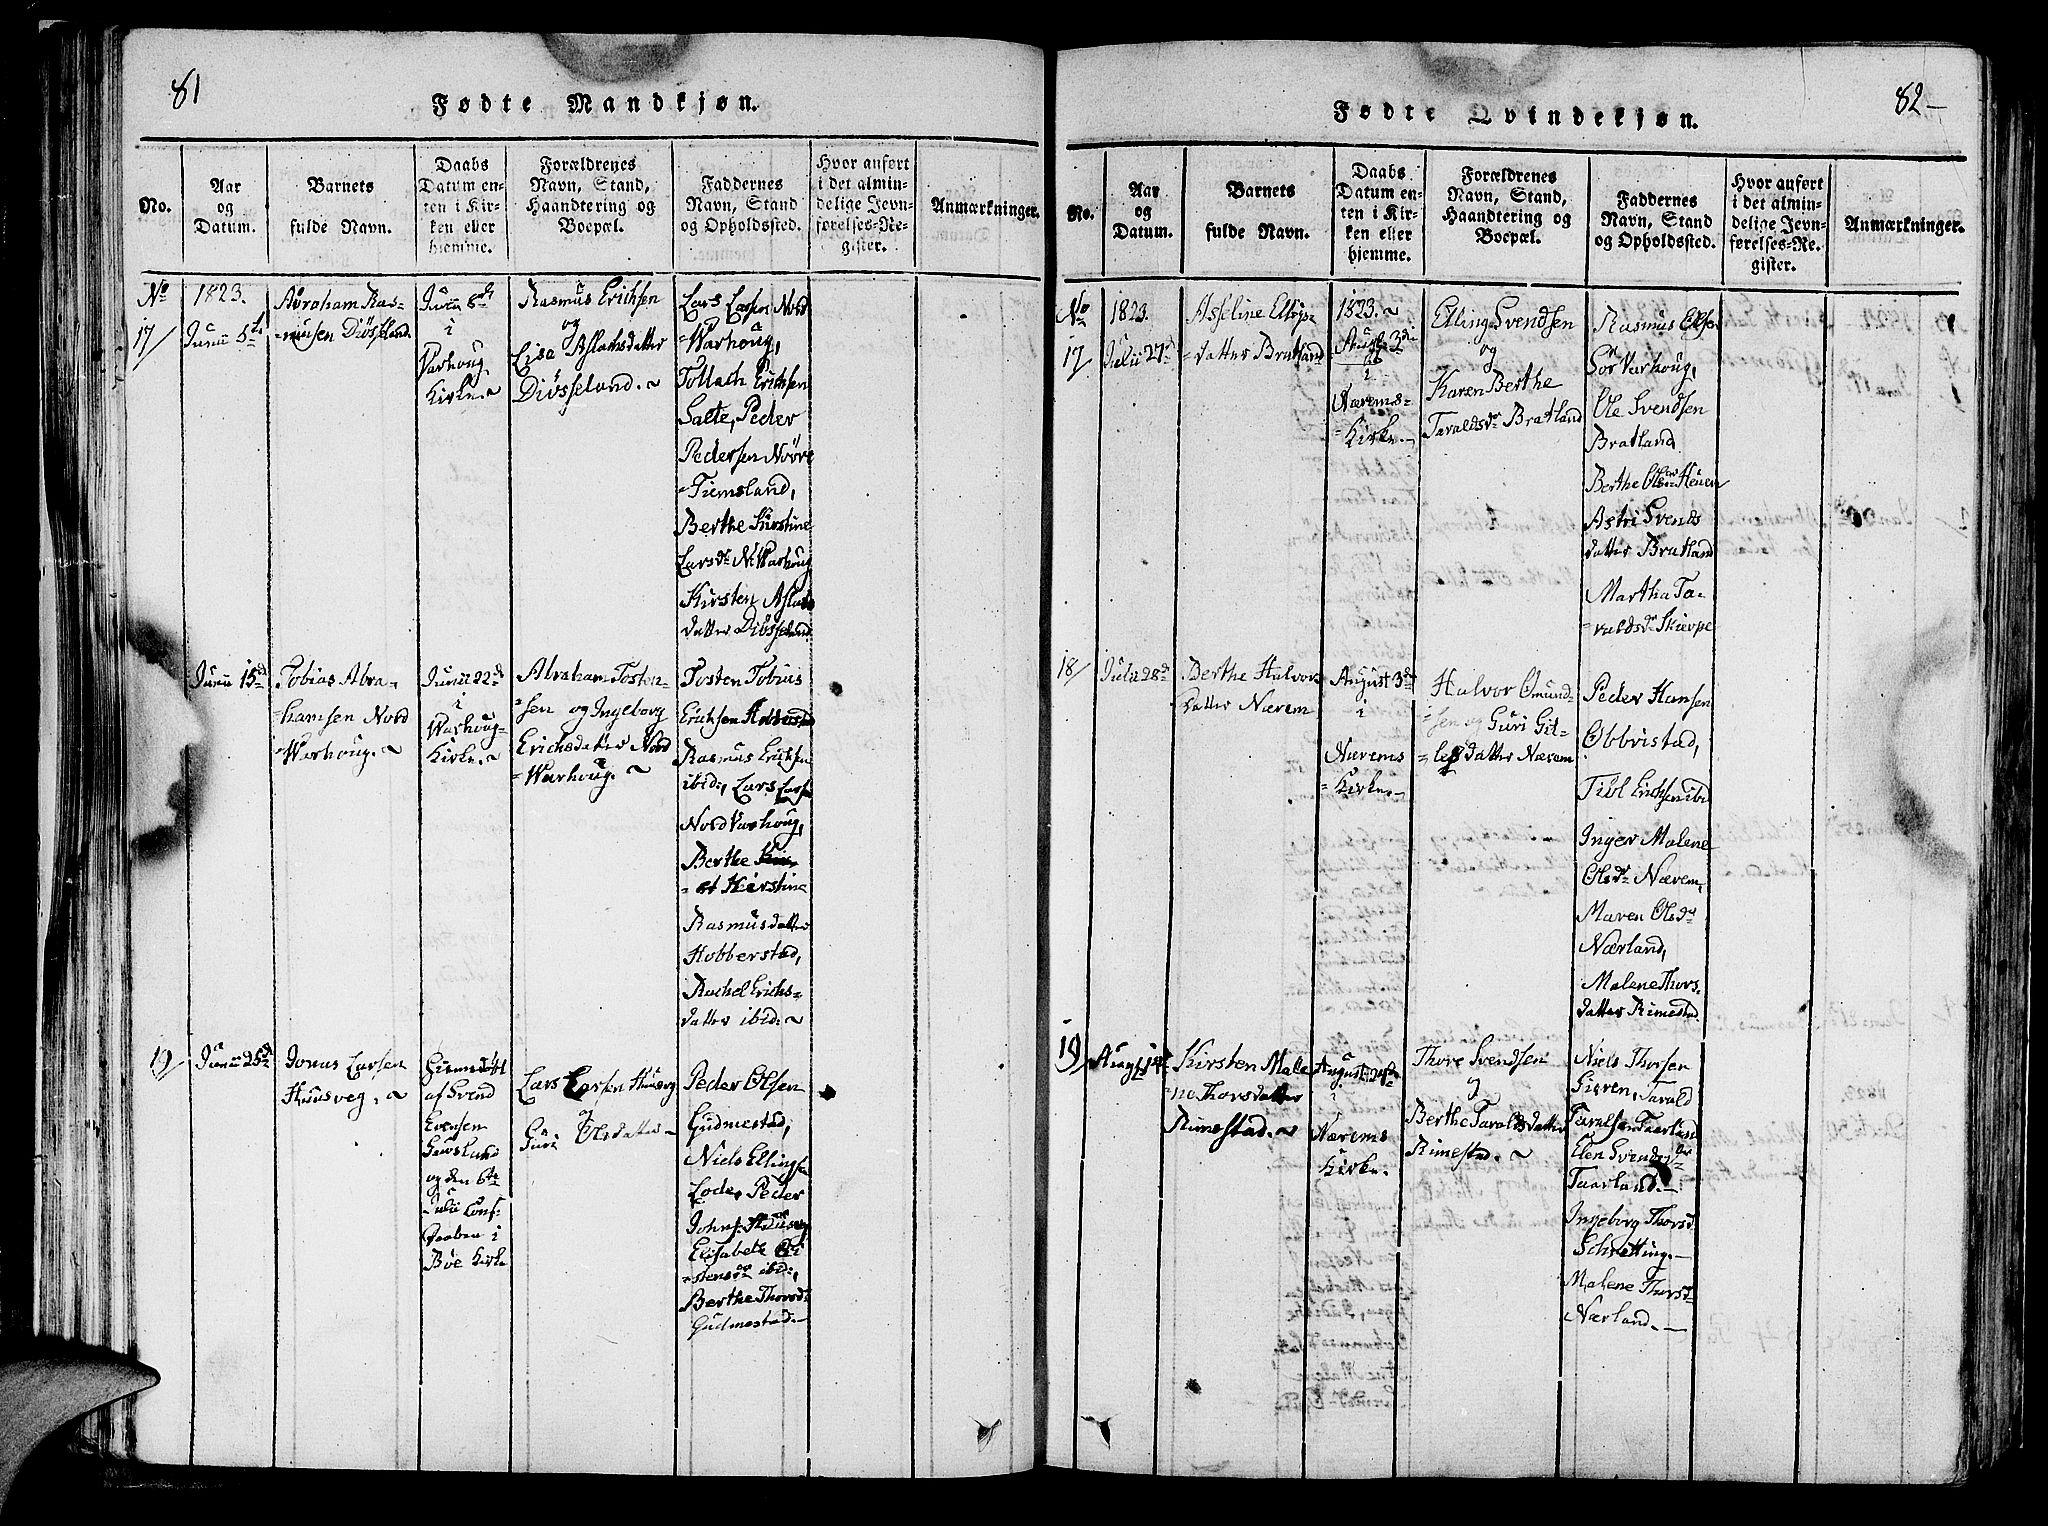 81
Fødte Mandkjøn.
No.
Aar
og
Datum.
Barnets
fulde Navn.
Daabs
Datum en-
ten i Kir-
ken eller
hjemme.
Forældrenes
Navn, Stand,
Haandtering og
Boepæl.
Faddernes
Navn, Stand
og Opholdssted.
Hvor anført
i det almin-
delige Jevn-
førelses-Re-
gister.
Anmærkninger.
No
17/
1823.
Junii 5te
Abraham Ras-
=musen Diösland.
Junii 8de
i
Varhoug
Kirke. ~
Rasmus Erichsen
og
Lisa Aslachsdatter
Diösseland. ~
Lars Larsen Nord
=Warhoug,
Tollach Erichsen
Salte, Peder
Pedersen Nöøre
=Tiemsland,
Berthe Kirstine
Larsdr N. Warhoug
Kirsten Aslaks
datter Diösseland.
Junii 15de
Tobias Abra-
=hamsen Nord
=Warhoug. ~
Junii 22de
i
Warhoug-
Kirke. ~
Abraham Tosten-
=sen og Ingeborg
Erichsdatter Nord
=Warhoug. ~
Tosten Tobias
Erichsen Hobberstad
Rasmus Erichsen
ibid:, Lars Larsen
Nord Varhoug,
Berthe
Kirstine
Rasmusdatter
Hobberstad,
Rachel Erichs-
datter ibid: ~
19/
Junii 25de
Jonas Larsen
Huusveg. ~
af Svend
Evensen
og den 6te
Julii Conf-
Daaben i
Böe Kirke
Lars Larsen Huusveg
og
Güri Olsdatter ~
Peder Olsen
Gudmestad,
Niels Ellingsen
Lode, Peder
Johns. Huusveg
Elisabeth
=stensdr ibid:,
Berthe Thorsdr
Gudmestad. ~
82 -
Fødte Qvindekjøn.
No.
Aar
og
Datum.
Barnets
fulde Navn.
Daabs
Datum en-
ten i Kir-
ken eller
hjemme.
Forældrenes
Navn, Stand,
Haandtering og
Boepæl.
Faddernes
Navn, Stand
og Opholdssted.
Hvor anført
i det almin-
delige Jevn-
førelses-Re-
gister.
Anmærkninger.
No
17/
1823.
Julii 27de
Asseline Ellings-
=datter Bratland
1823. ~
August 3die
i
Nærems-
=Kirke. ~
Elling Svendsen
og
Karen Berthe
Taraldsdr Bratland
Rasmus Elsen
Sör Varhoug,
Ole Svendsen
Bratland
Berthe Olsen Heüen
Astri Svends
datter Bratland
Martha Ta-
=raldsdr Skierpe
18/
Julii 28de
Berthe Halvors
datter Nærem
August 3die
i
Nærems
=Kirke. ~
Halvor Omund-
=sen og Güri Git-
=lesdatter Nærem
Peder Hansen
Obbristad,
Tiöl Erichsen ibd
Inger Malene
Olsdr Nærem,
Maren Olsdr
Nærland,
Malene Thors-
datter Rimestad.
19/
Aug 14de
Kirsten Male
=ne Thorsdatter
Rimestad. ~
August 24de
i
Nærems
Kirke.
Thore Svendsen
og
Berthe Taraldsdatter
Rimestad. ~
Niels Thorsen
Gieren, Tarald
Taralsen Taarland
Elen Svendsdr
Taarland. ~
Ingeborg Thorsd
Schretting. ~
Malene Thorsdr
Nærland. ~